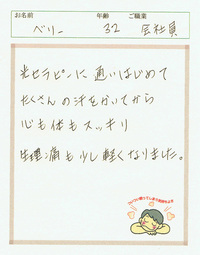 お名前 年齢 ご職業
ベリー 32 会社員
光セラピンに通いはじめて
たくさんの汗をかいてから
心も体もスッキリ
生理痛も少し軽くなりました。